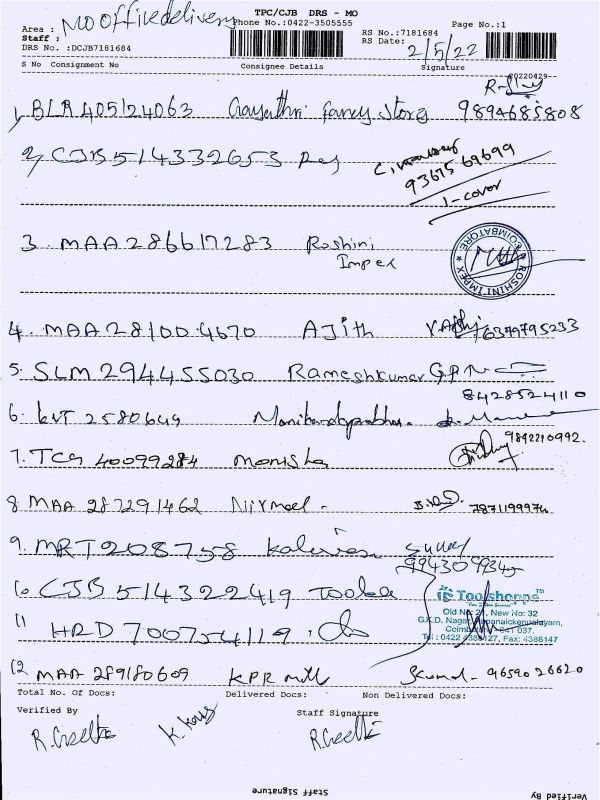 TPC/CJB DRS - MO
Area : MO office delivery
Phone No.:0422-3505555
Page No.:1
Staff :
RS No.:7181684
DRS No. :DCJB7181684
RS Date: 2/5/22
S No Consignment No Consignee Details Signature
20220429
1, BLR 405124063 Gayathri fancy Stores 9894685808
2, CJB 514332653
93675 69699
1-cover
3. MAA 286617283 Roshini
Impex
COIMBATORE
ROSHINI IMPEX
4. MAA 28100 4670 AJith 6379795233
5. SLM 294455030 Rameshkumar G.P.N
8428524110
6. KVT 2580649 Manikandaprabhu
9842210992.
7. TCG 40099284 monisha
8. MAA 287291462 Nirmal - 7871199974
9. MRT 208758
9943099345
10 CJB 514322419 Tools
Toolshoppe™
Old No: 21, New No: 32
G.K.D. Nagar, Pappanaickenpalayam,
Coimbatore - 641 037.
Tel : 0422 4388127, Fax: 4388147
11 HRD 700754119
12 MAA 289180609 KPR mill 9659026620
Total No. Of Docs: Delivered Docs: Non Delivered Docs:
Verified By Staff Signature
R.Geetha
R.Geetha
Staff Signature Verified By